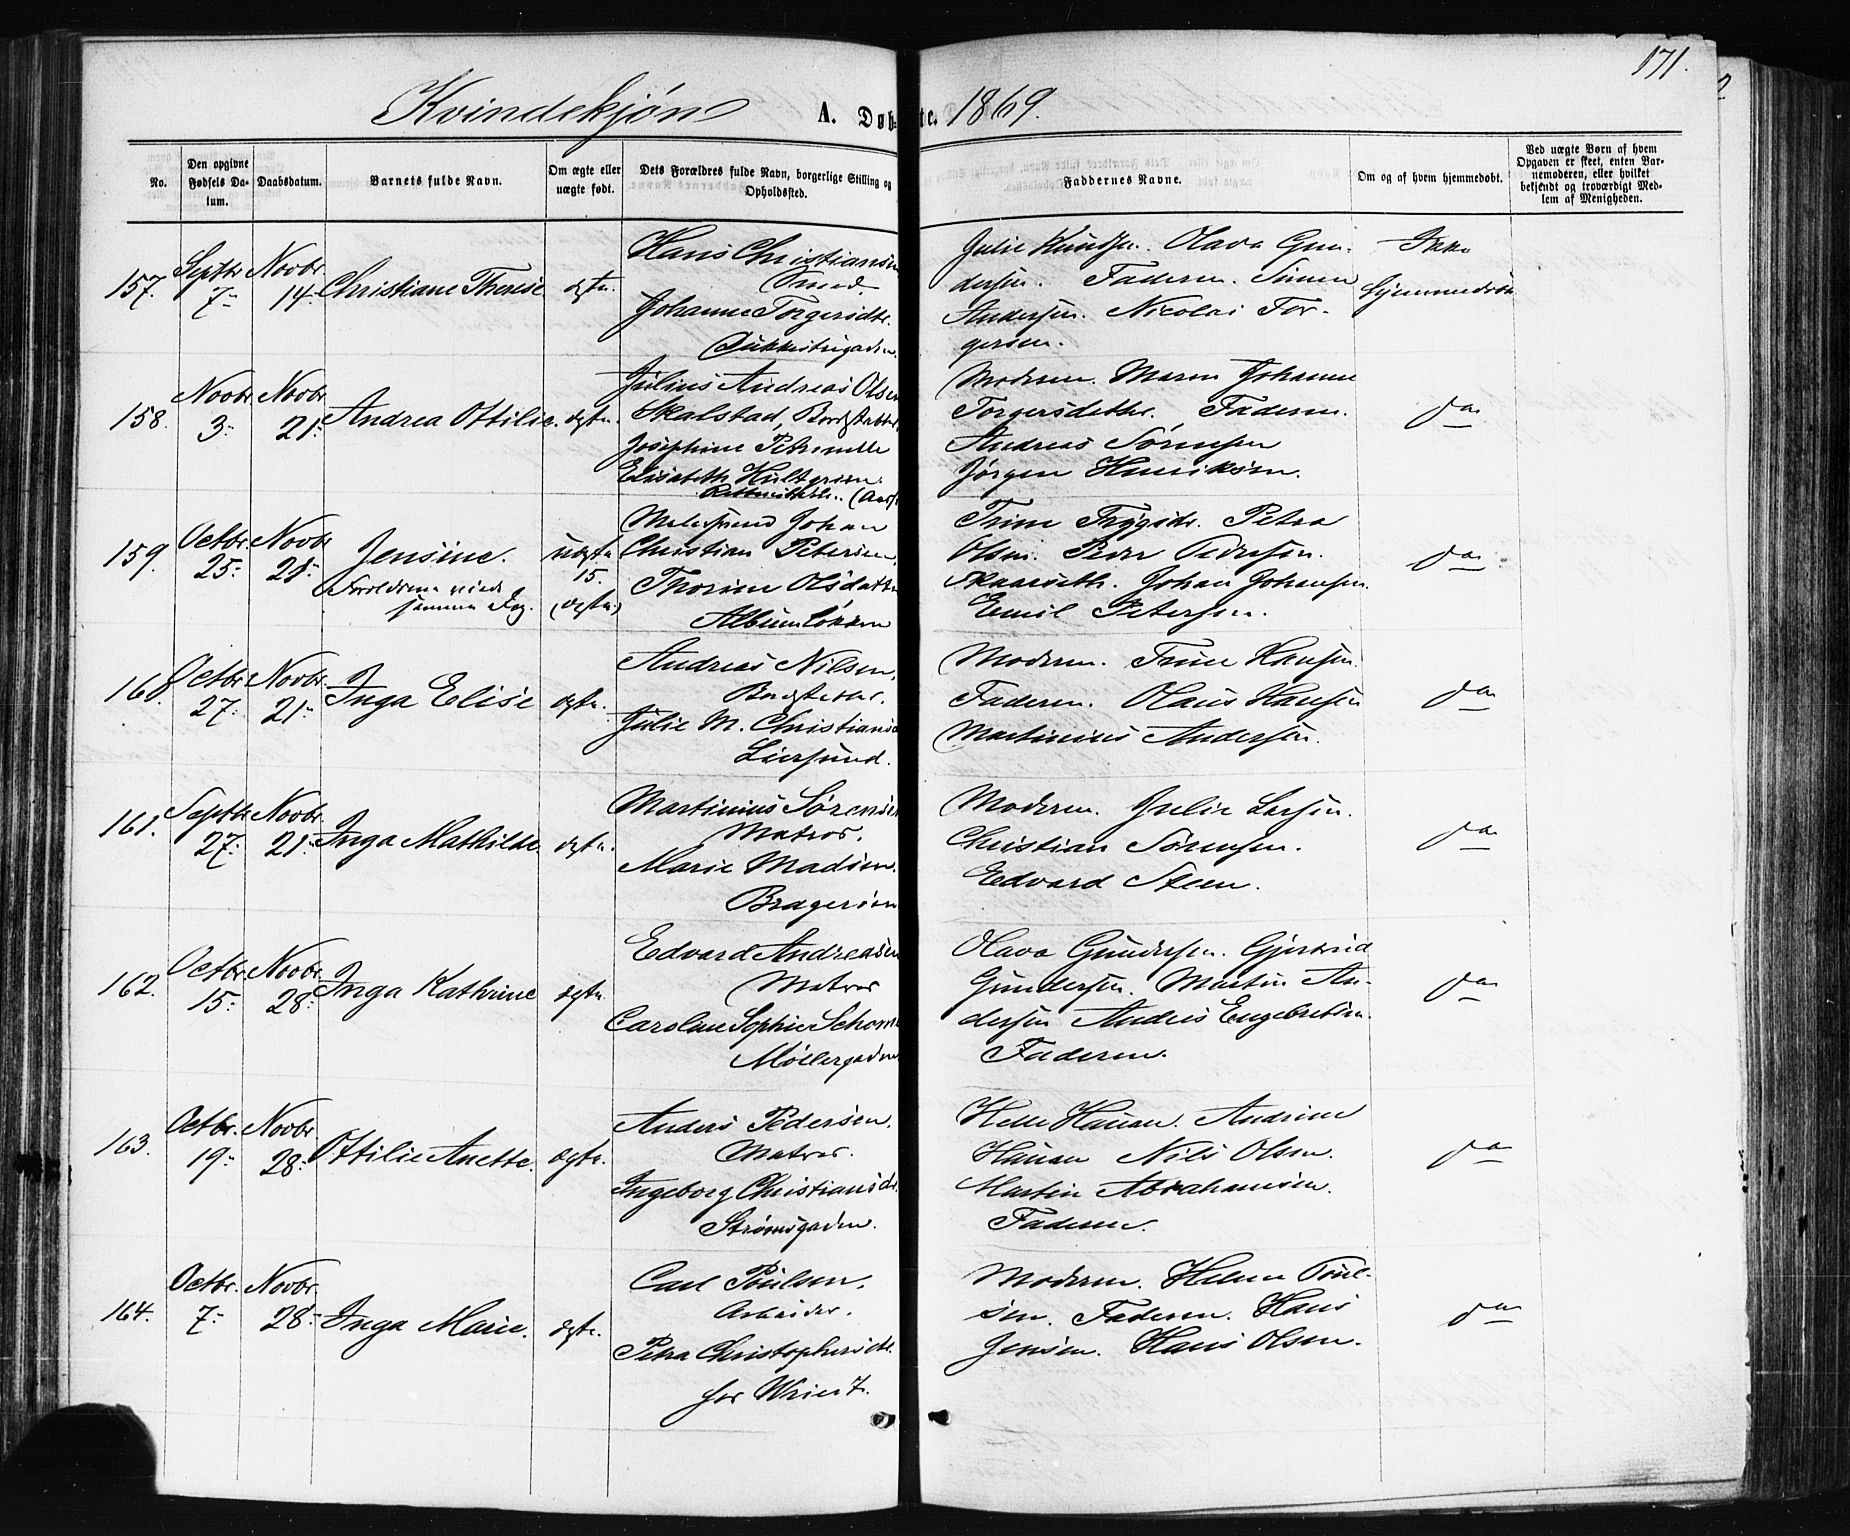 171.
Kvindekjøn A. Døbte. 1869.
No.
Den opgivne Fødsels Datum.
Daabsdatum.
Barnets fulde Navn.
Om ægte eller uægte født.
Dets Forældres fulde Navn, borgerlige Stilling og Opholdssted.
Faddernes Navne.
Om og af hvem hjemmedøbt.
Ved uægte Børn af hvem Opgaven er skeet, enten Barnemoderen, eller hvilket bekjendt og troværdigt Medlem af Menigheden.
157. Septbr 7- Novbr. 14- Christiane Therese ægte.
Hans Christiansen
Smed.
Johanne Torgersdtr.
Julie Knudsen. Olava Gun-
dersen. Faderen. Simen
Andersen. Nicolai Tor-
gersen.
Ikke
hjemmedøbt
158. Novbr 3- Novbr. 21- Andrea Ottilie. ægte.
Julius Andreas Olsen
Skalstad,
Josephine Petrinelle
Elisabeth
Moderen. Maren Johanne
Torgersdatter. Faderen.
Andreas Sørensen
Jørgen Henriksen.
do
159. Octbr. 25- Novbr 21- Jensine. uægte
15.
(ægte)
Forældrene viede
samme Dag.
Johan
Christian Petersen,
Thorine Olsdatter
Albumløkken
Trine Petra
Olsen. Peder Pedersen
Johan Johansen
Emil Petersen.
do
160. Octbr. 27- Novbr. 21- Inga Elise ægte.
Andreas Nilsen,
Julie M. Christiansen
Liersund.
Moderen. Trine Hansen.
Faderen. Olaus Hansen
Martinius Andersen.
do
161. Septbr. 27- Novbr. 21- Inga Mathilde. ægte.
Martinius Sørensen
Matros.
Marie Madsen.
Bragerøen
Moderen. Julie Larsen.
Christian Sørensen.
Edvard Steen.
do
162. Octbr. 15- Novbr. 28- Inga Kathrine ægte.
Edvard Andreasen
Matros
Caroline Sophie
Møllergaden
Olava Gundersen. Gjertrud
Gundersen. Martin An-
dersen Andreas Engebretsen.
Faderen.
do
163. Octbr. 19- Novbr. 28- Ottilie Anette. ægte.
Anders Pedersen.
Matros.
Ingeborg Christiansdtr.
Strømsgaden.
Helle Hauan. Andrine
Hauan Nils Olsen.
Martin Abrahamsen.
Faderen.
do
164. Octbr. 7- Novbr. 28- Inga Marie. ægte.
Carl Poulsen.
Arbeider.
Petra Christophersdtr.
Moderen. Helene Poul-
sen. Faderen. Hans
Jensen. Hans Olsen.
do